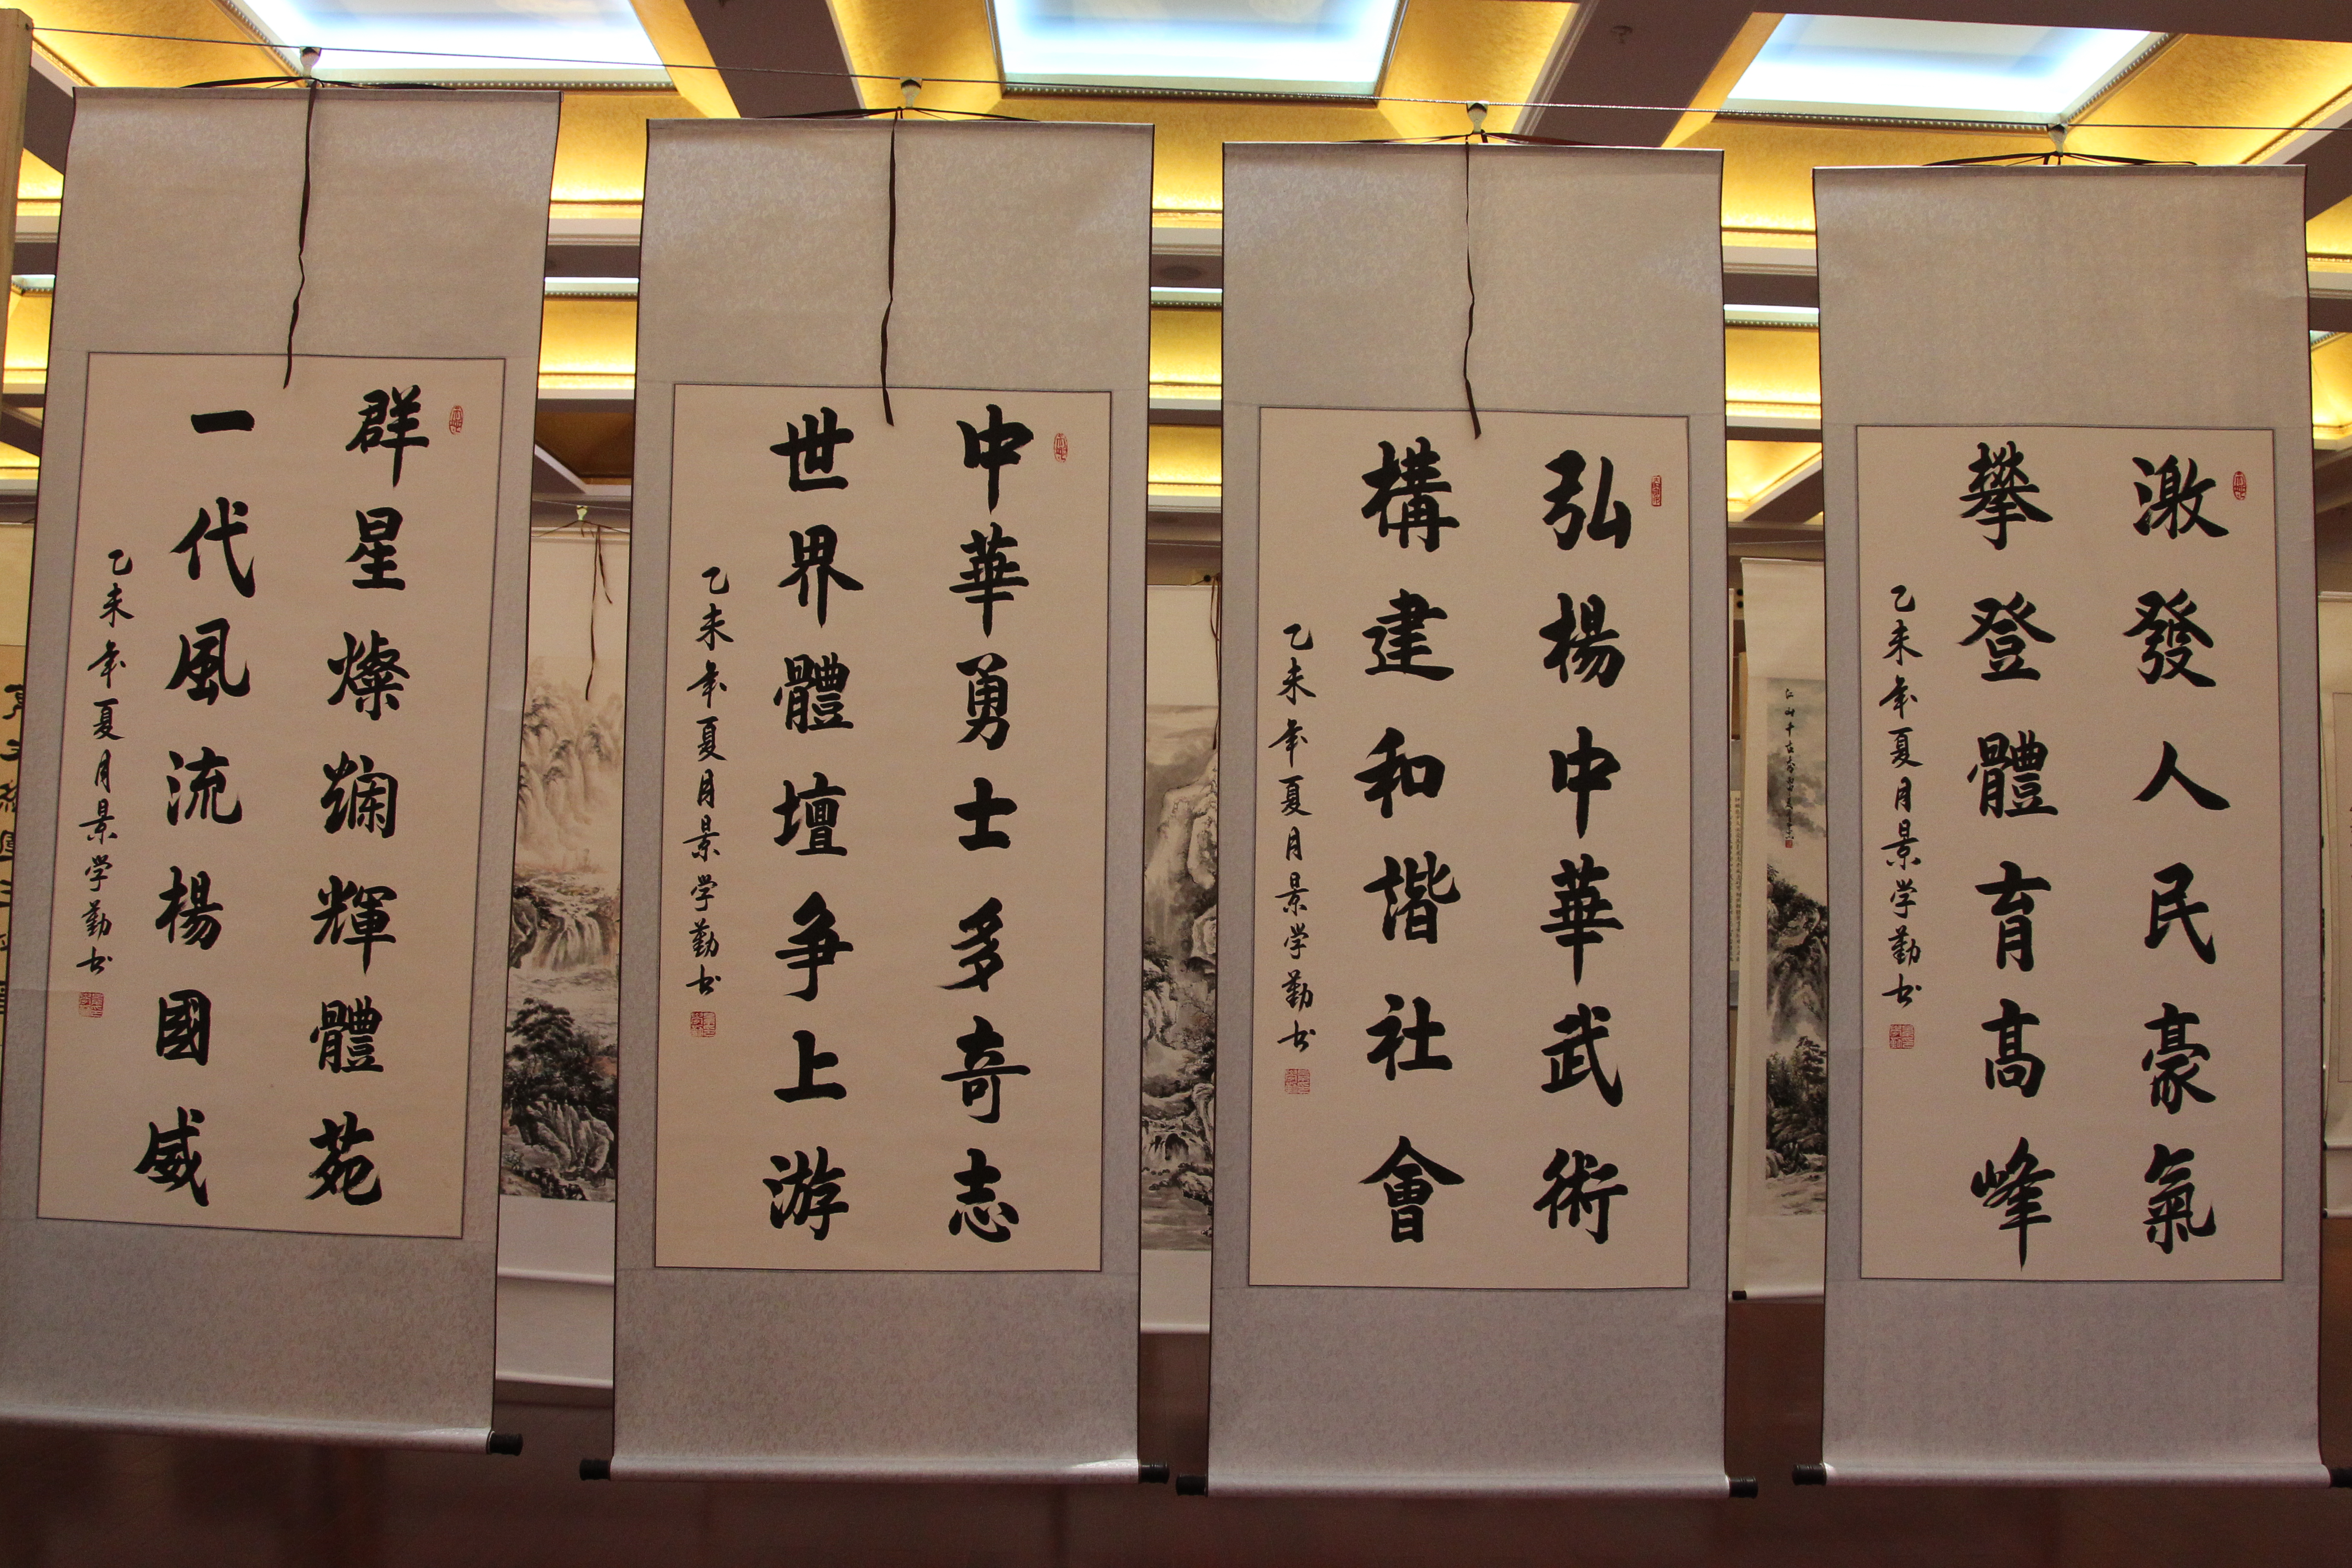 激發人民豪氣
攀登體育高峰
乙未年夏月景学勤书
弘楊中華武術
構建和諧社會
乙未年夏月景学勤书
中華勇士多奇志
世界體壇争上游
乙未年夏月景学勤书
群星燦斕輝體苑
一代風流楊國威
乙未年夏月景学勤书